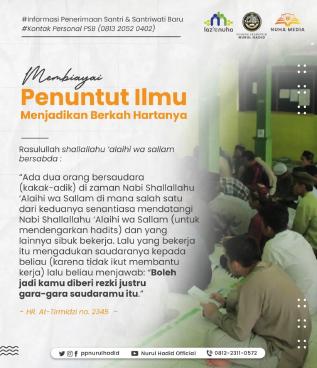 #Informasi Penerimaan Santri & Santriwati Baru
#Kontak Personal PSB (0813 2052 0402)
laz'enuha
NURUL HADID
NUHA MEDIA
Membiayai
Penuntut Ilmu
Menjadikan Berkah Hartanya
Rasulullah shallallahu 'alaihi wa sallam
bersabda :
"Ada dua orang bersaudara
(kakak-adik) di zaman Nabi Shallallahu
'Alaihi wa Sallam di mana salah satu
dari keduanya senantiasa mendatangi
Nabi Shallallahu 'Alaihi wa Sallam (untuk
mendengarkan hadits) dan yang
lainnya sibuk bekerja. Lalu yang bekerja
itu mengadukan saudaranya kepada
beliau (karena tidak ikut membantu
kerja) lalu beliau menjawab: "Boleh
jadi kamu diberi rezki justru
gara-gara saudaramu itu."
- HR. At-Tirmidzi no. 2345 -
ppnurulhadid
Nurul Hadid Official
0812-2311-0572